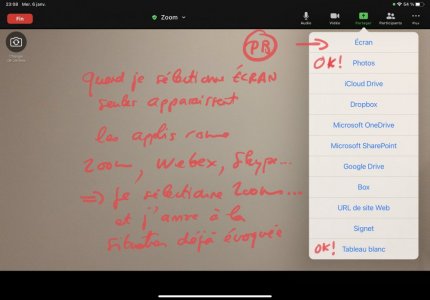 23:08 Mer. 6 janv.
54 %
Fin
Zoom
Audio
Vidéo
Partager
Participants
Plus
PB
Écran
OK! Photos
iCloud Drive
Dropbox
Microsoft OneDrive
Microsoft SharePoint
Google Drive
Box
URL de site Web
Signet
OK! Tableau blanc
Quand je sélectionne ÉCRAN
seules apparaissent
les applis comme
Zoom, Webex, Skype...
=> Je sélectionne Zoom...
et j'arrive à la
situation déjà évoquée